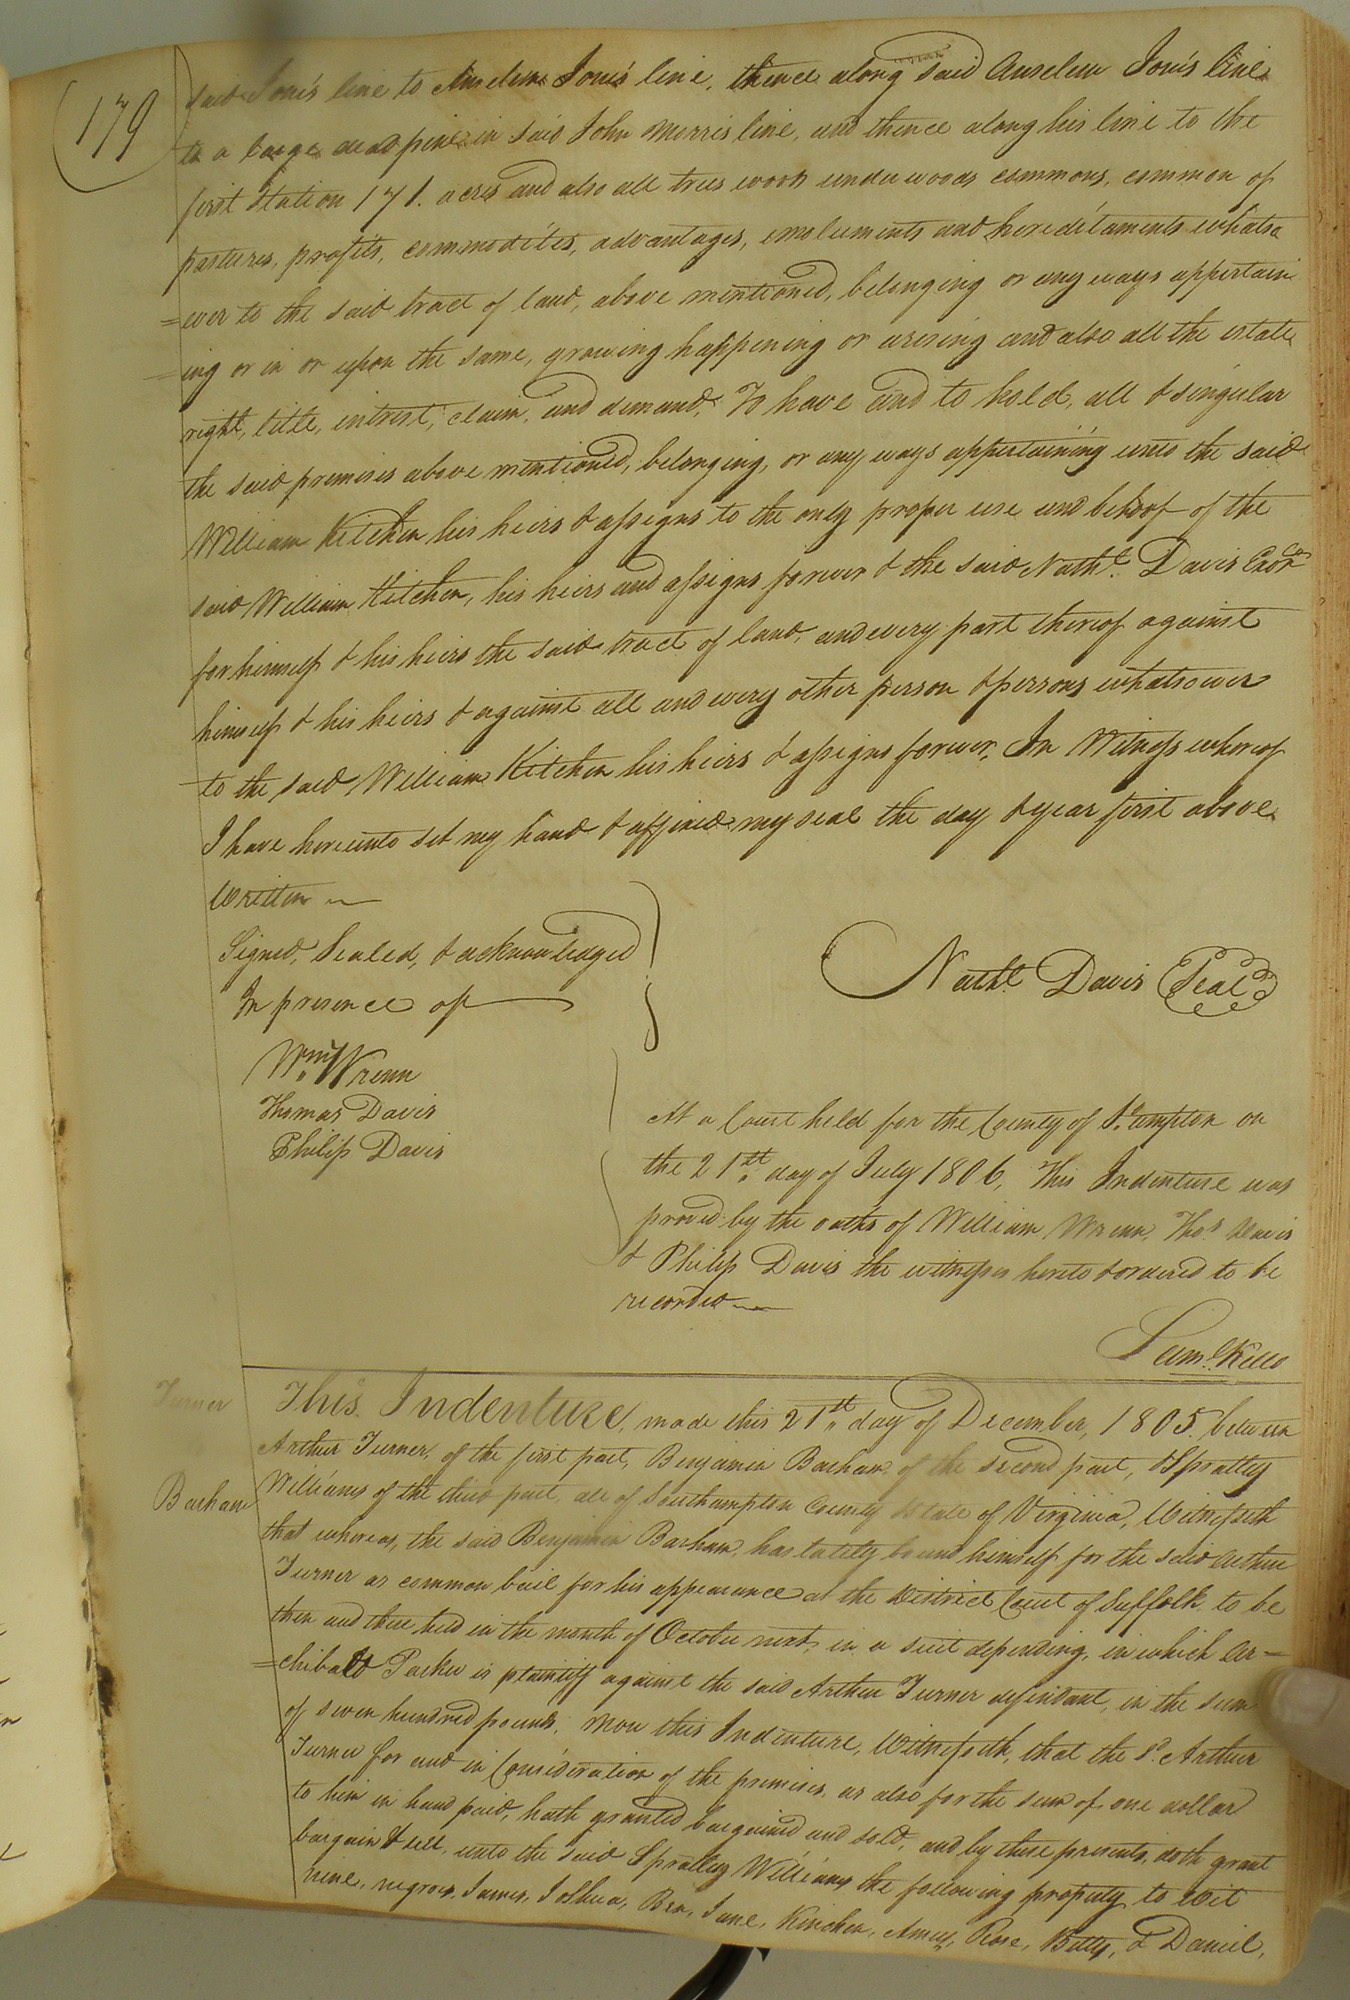 179
said Jones line to Anselem Jones line, thence along said Anselem Jones line
to a large dead pine in said John Morris line, and thence along his line to the
first station 171. acres and also all trees woods underwoods commons, common of
pastures, profits, commodities, advantages, emoluments and hereditaments whatso
=ever to the said tract of land, above mentioned, belonging or any ways appertain
=ing or in or upon the same, growing happening or arising and also all the estate
right, title, intrest, claim, and demand, To have and to hold, all & singular
the said premises above mentioned, belonging, or any ways appertaining unto the said
William Kitchen his heirs & assigns to the only proper use and behoof of the
said William Kitchen, his heirs and assigns forever & the said Nathl. Davis Exor
for himself & his heirs the said tract of land, and every part thereof against
himself & his heirs & against all and every other person & persons whatsoever
to the said William Kitchen his heirs & assigns forever, In Witness whereof
I have hereunto set my hand & affixed my seal the day & year first above
Written
Signed, Sealed, & acknowledged
In presence of
Nathl. Davis Seal
Wm. Wrenn
Thomas Davis
Philip Davis
At a Court held for the County of So.ampton on
the 21st. day of July 1806, This Indenture was
proved by the oaths of William Wrenn, Thos Davis
& Philip Davis the witnesses hereto & ordered to be
recorded
Saml. Kello
Turner
Barham
This Indenture, made this 21st. day of December, 1805. between
Arthur Turner, of the first part, Benjamin Barham of the second part, & Spratley
Williams of the third part, all of Southampton County & State of Virginia, Witnesseth
that whereas, the said Benjamin Barham, has lately bound himself for the said Arthur
Turner as common bail for his appearance at the District Court of Suffolk to be
then and there held in the month of October next, in a suit depending, in which Ar=
=chibald Parker is plaintiff against the said Arthur Turner defendant, in the sum
of seven hundred pounds, Now this Indenture, Witnesseth, that the sd. Arthur
Turner for and in Consideration of the premises as also for the sum of one dollar
to him in hand paid, hath granted bargained and sold, and by these presents, doth grant
bargain & sell, unto the said Spratley Williams the following property to wit
nine, negroes, James, Joshua, Ben, Jane, Kinchen, Amey, Rose, Betty, & Daniel,